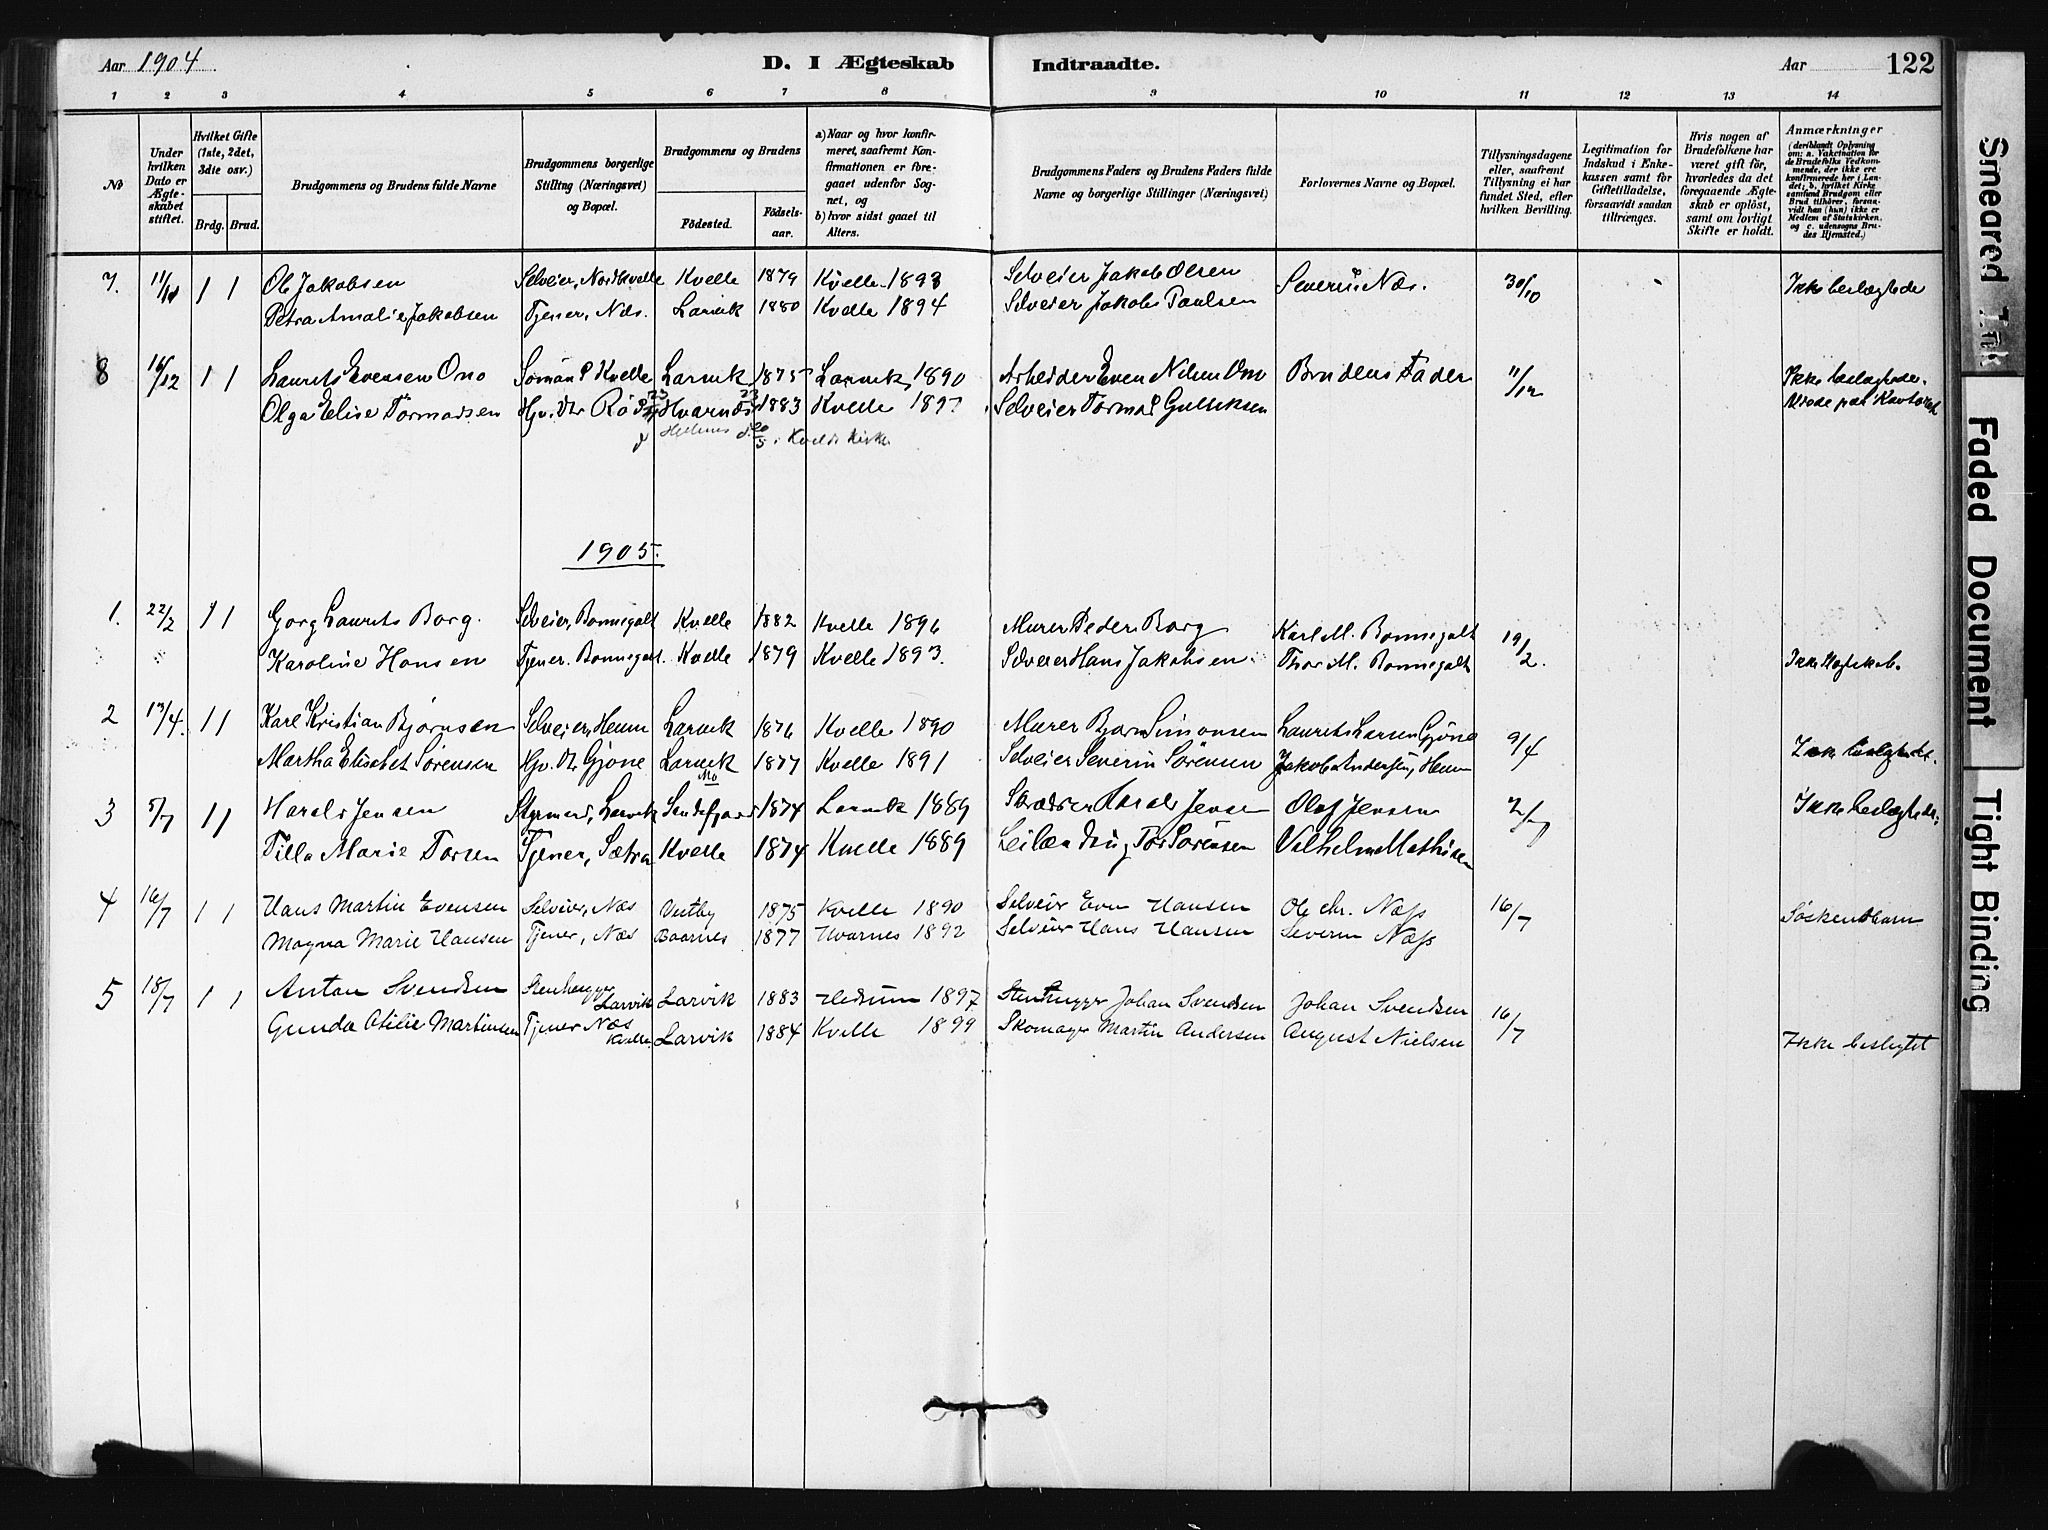 Aar 1904
D. I Ægteskab Indtraadte.
Aar 122
1 2 3 4 5 6 7 8 9 10 11 12 13 14
No
Under hvilken Dato er Ægteskabet stiftet.
Hvilket Gifte (1ste, 2det, 3die osv.)
Brdg. Brud.
Brudgommens og Brudens fulde Navne
Brudgommens borgerlige Stilling (Næringsvet) og Bopæl.
Brudgommens og Brudens
Fødested. Fødselsaar.
a) Naar og hvor konfirmeret, saafremt Konfirmationen er foregaaet udenfor Sognet, og
b) hvor sidst gaaet til Alters.
Brudgommens Faders og Brudens Faders fulde Navne og borgerlige Stillinger (Næringsvet)
Forlovernes Navne og Bopæl.
Tillysningsdagene eller, saafremt Tillysning ei har fundet Sted, efter hvilken Bevilling.
Legitimation for Indskud i Enkekassen samt for Giftetilladelse, forsaavidt saadan tiltrænges.
Hvis nogen af Brudefolkene har været gift før, hvorledes da det foregaaende Ægteskab er opløst, samt om lovligt Skifte er holdt.
Anmærkninger (deriblandt Oplysning om: a. Vakcination for de Brudefolks Vedkommende, der ikke ere konfirmerede her i Landet; b. hvilket Kirkesamfund Brudgom eller Brud tilhører, forsaavidt han (hun) ikke er Medlem af Statskirken, og c. udensogns Brudes Hjemsted.)
7. 11/11 1 1 Ole Jakobsen Selveier, Nordkvelle Kvelle 1879 Kvelle 1893 Selveier Jakob Olsen Severin Næs. 30/10 Ikke beslægtede
Petra Amalie Jakobsen Tjener, Næs. Larvik 1880 Kvelle 1894 Selveier Jakob Paulsen
8 16/12 1 1 Laurits Evensen Ono Sømand Kvelle Larvik 1875 Larvik 1890 Arbeider Even Nilsen Ono Brudens Fader 11/12 Ikke beslægtede.
Olga Elise Tormodsen Hjv. Dtr Hvarnes 1883 Kvelle 1897 Selveier Tormod Gulliksen
Kvelle Kirke
1905.
1. 22/2 1 1 Gorg Laurits Borg. Selveier, Bonnegolt Kvelle 1882 Kvelle 1896 Murer Peder Borg Karl M. Bonnegolt 19/2.
Karoline Hansen Tjener. Bonnegolt. Kvelle 1879 Kvelle 1893. Selveier Hans Jakobsen. Thor M. Bonnegolt Ikke
2 13/4. 1 1 Karl Kristian Bjørnsen Selveier, Hem Larvik 1876 Kvelle 1890 Murer Bjørn Simonsen Laurits Larsen Gjøne 9/4
Martha Elisabet Sørensen Hjv. Dtr Gjøne Larvik 1877 Kvelle 1891 Selveier Severin Sørensen Jakob Andersen, Hem Ikke beslægtede.
3 5/7 1 1 Harald Jensen Styrmand, Larvik Mo Sandefjord 1874 Larvik 1889 Skrædder Harald Jensen Olaf Jensen 2/7 Ikke beslægtede.
Tilla Marie Torsen Tjener, Sætra Kvelle 1874 Kvelle 1889 Leilænding Tor Sørensen Vilhelm Mathisen
4 16/7 1 1 Hans Martin Evensen Selveier, Næs Vestby 1875 Kvelle 1890 Selveier Even Hansen Ole Chr. Næss 16/7 Søskenebarn
Magna Marie Hansen Tjener, Næs 1877 Hvarnes 1892 Selveier Hans Hansen Severin Næss
5 18/7 1 1 Anton Svendsen Stenhugger Larvik Larvik 1883 Hedrum 1897 Stenhugger Johan Svendsen Johan Svendsen 16/7
Gunda Otilie Martinsen Tjener Næs Kvelle Larvik 1884 Kvelle 1899 Skomager Martin Andersen August Nielsen Ikke beslegtet
Smeared Ink
Faded Document
Tight Binding